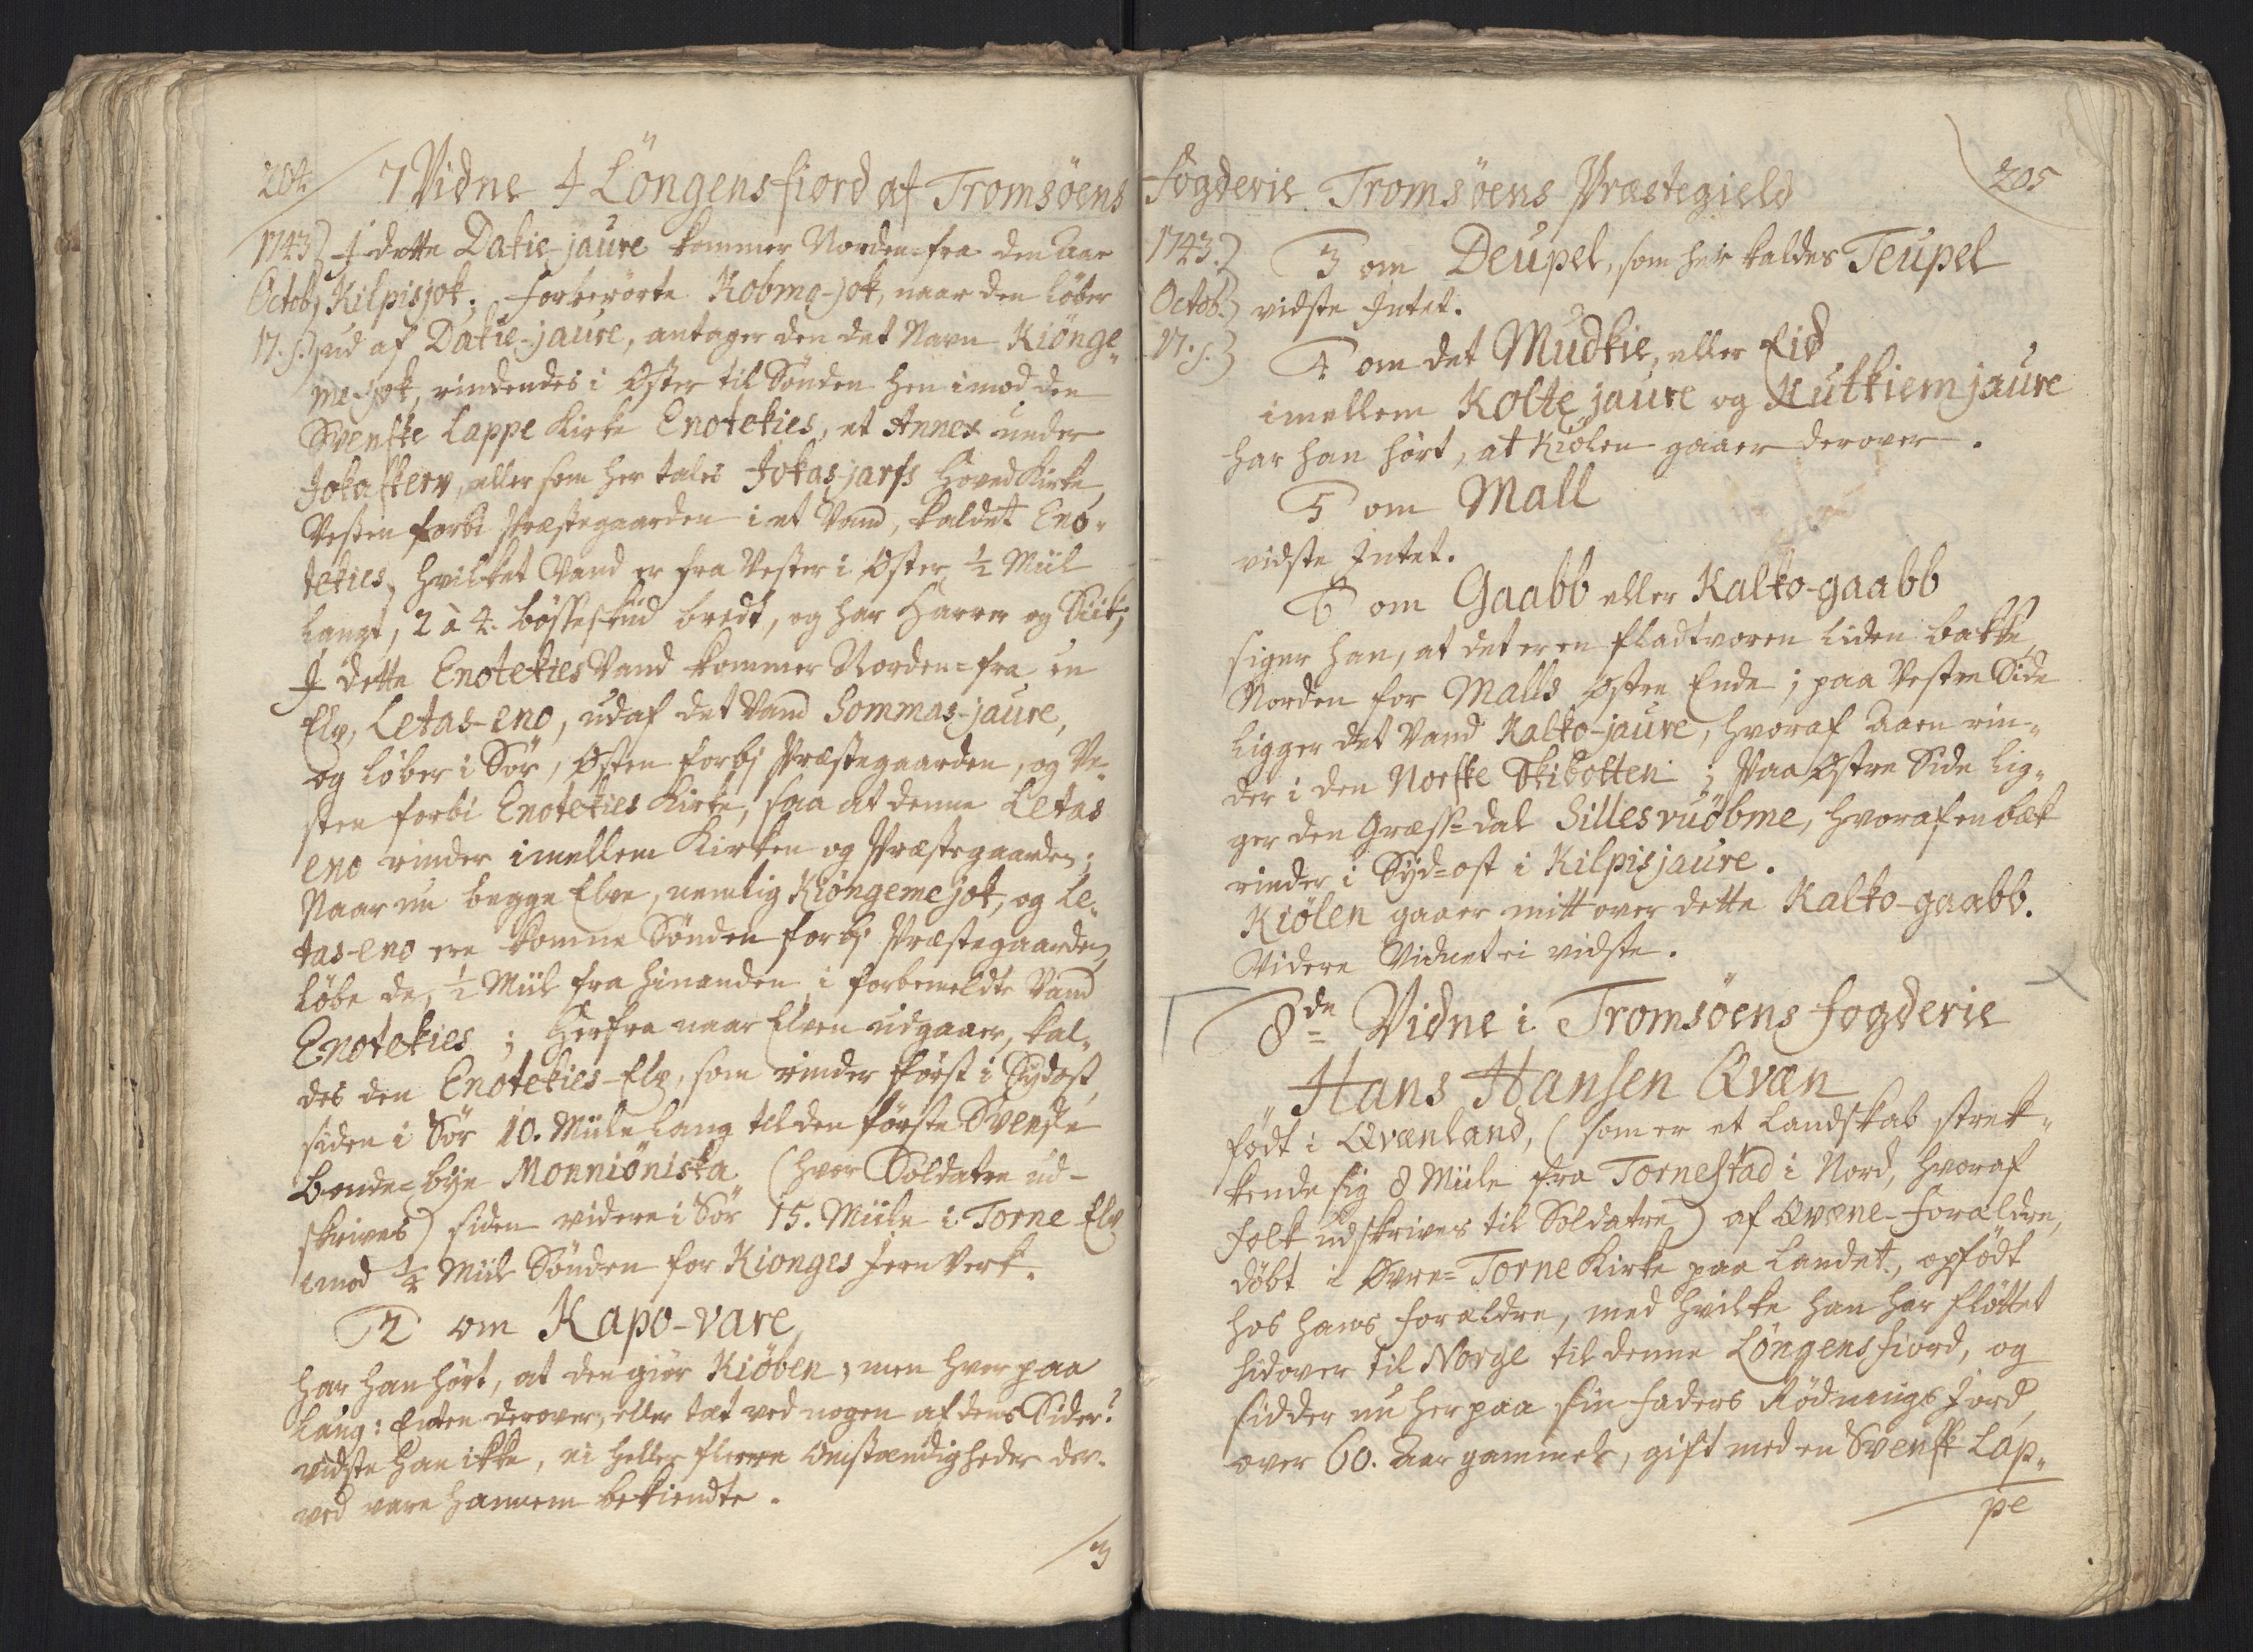 204.
7 Vidne I Löngensfiord af Tromsöens
1743. I dette Datie-jaure kommer Norden-fra den Aae
Octob. Kilpisjok; forberörte Kobma-jok, naar den löber
17. s. ud af Datie-jaure, antager den det Navn Kiönge-
me-jok, rindendes i Öster til Sönden hen imod den
Svenske Lappe Kirke Enotekies, et Annex under
Jokaskerv, eller som her tales Jokasjarfs Hoved Kirke,
Vesten forbi Præstegaarden i et Vand, kaldet Eno-
tekies, hvilket Vand er fra Vester i Öster ½ Miil
langt, 2 à 4. bösseskud bredt, og har Harrer og Siik;
I dette Enotekies Vand kommer Norden-fra en
Elv, Letas-eno, udaf det Vand Sommas-jaure,
og löber i Sör, Östen forbj Præstegaarden, og Ve-
sten forbi Enotekies Kirke, saa at denne Letas
eno rinder imellem Kirken og Præstegaarden;
Naar nu begge Elve, nemlig Kiöngemejok, og Le-
tas-eno ere komne Sönden forbj Præstegaarden,
löbe de, ½ Miil fra hinanden i forbemeldte Vand
Enotekies; Herfra naar Elven udgaaer, kal-
des den Enotekies-Elv, som rinder först i Sydost,
siden i Sör 10. Miile lang til den förste Svenske
bonde-bÿe Monniöniska (hvor Soldatere ud-
skrives) siden videre i Sör 15. Miile i Torne Elv
imod ¼ Miil Sönden for Kionges Jern Verk.
2 om Kapo-vare
har han hört, at den giör Kiölen; men hver paa
lang: Enten derover, eller tæt ved nogen af dens Sider?
vidste han ikke, ei heller fleere Omstændigheder der-
ved vare hannem bekiendte.
/3
Fogderie Tromsöens Præstegield
205
1743. 3 om Deupel, som her kaldes Teupel
Octob. vidste Intet.
17. s. 4 om det Mudkie, eller Eid
imellem Kolte jaure og Kutkiemjaure
har han hört, at Kiölen gaaer derover.
5 om Mall
vidste Intet.
6 om Gaabb eller Kalko-gaabb
siger han, at det er en fladtvoren liden bakke,
Norden for Malls Östre Ende; paa Vestre Side
ligger det Vand Kalko-jaure, hvoraf Aaen rin-
der i den Norske Skibotten; Paa Östre Side lig-
ger den Græss-dal Sillesvuöbme, hvoraf en bæk
rinder i Syd-ost i Kilpisjaure.
Kiölen gaaer mitt over dette Kalko-gaabb.
Videre Vidnet ei vidste.
8de Vidne i Tromsöens fogderie
Hans Hansen Qvæn
födt i Qvænland, (som er et Landskab strek-
kende sig 8 Miile fra Tornestad i Nord, hvoraf
folk udskrives til Soldatere) af Qvæne-Foraldre,
döbt i Övre-Torne Kirke paa Landet, opfödt
hos hans Forældre, med hvilke han har flöttet
hidover til Norge til denne Löngensfiord, og
sidder nu her paa sin Faders Rödnings Jord,
over 60. Aar gammel, gift med en Svensk Lap-
pe